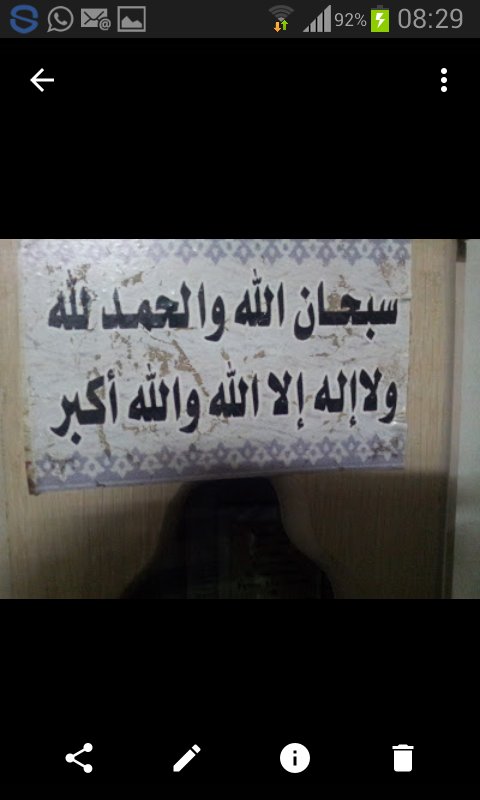 92% 08:29
سبحان الله والحمد لله
ولاإله إلا الله والله أكبر